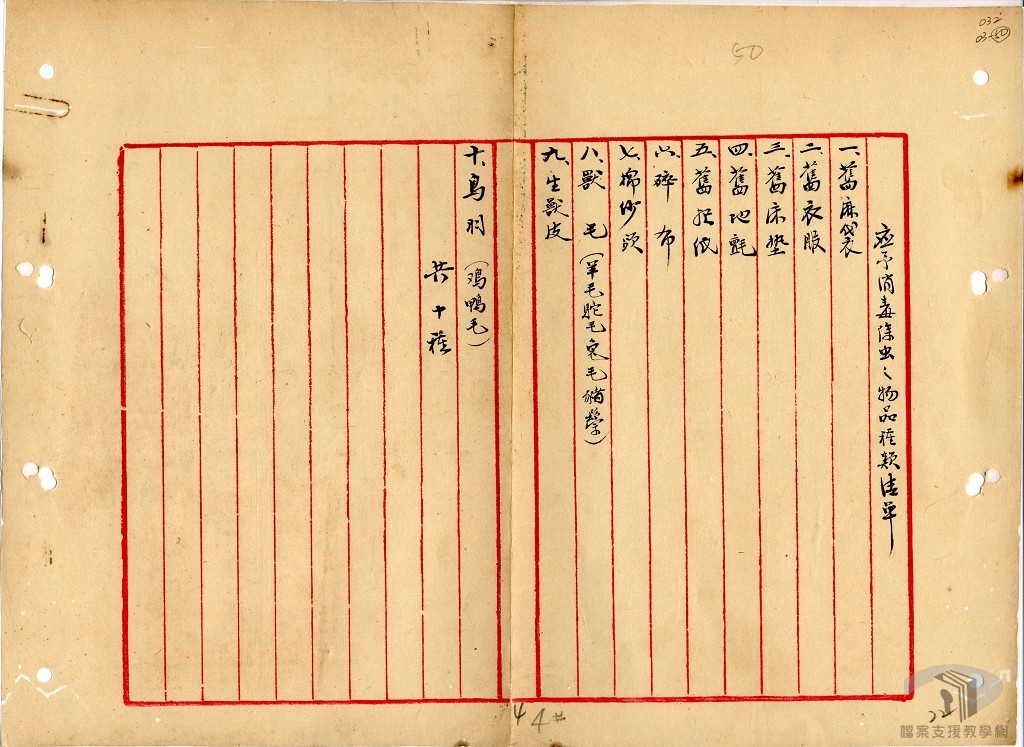 032
03-50
50
应予消毒除虫之物品種類清单
一、舊麻袋
二、舊衣服
三、舊床墊
四、舊地氈
五、舊报纸
六、碎布
七、棉纱頭
八、獸毛（羊毛駝毛兔毛猪鬃）
九、生獸皮
十、鳥羽（鸡鴨毛）
共十種
44
22
檔案支援教學網